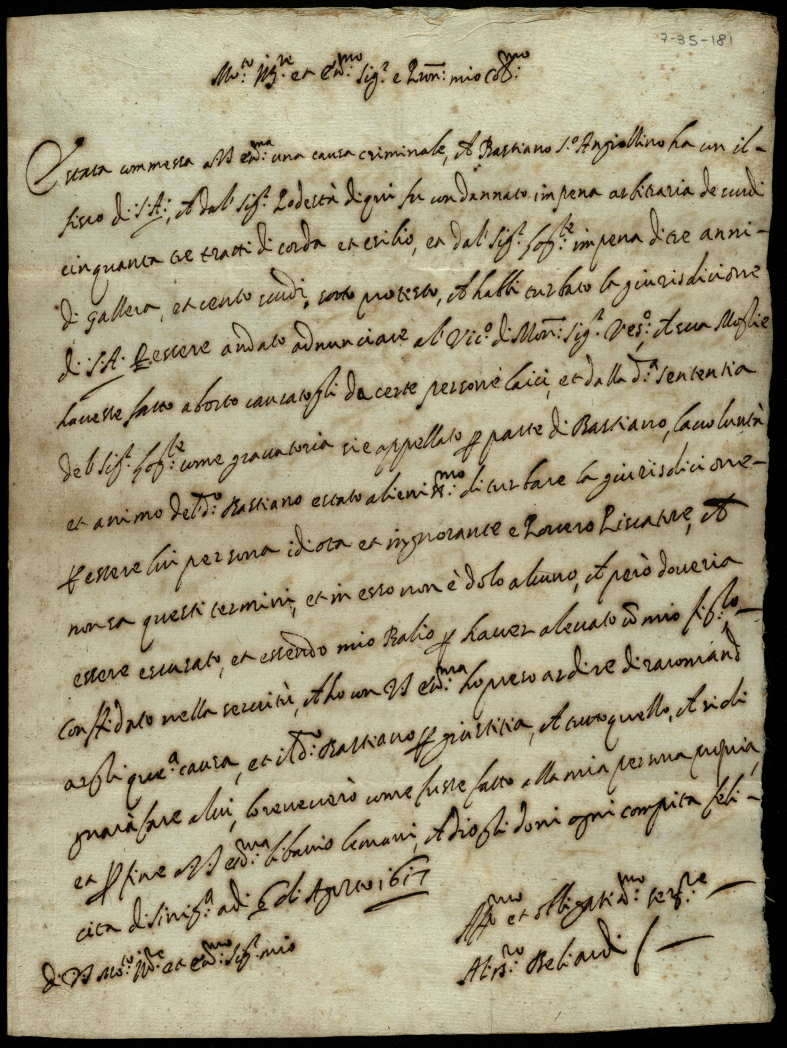 7-35-181
Mo.to Ill.re et Ecc.mo Sig.r e Pron: mio Co.mo
E stata commessa a VS ecc.ma una causa criminale, ch Bastiano s.o Angiollino ha con il-
fisco di S:A:, ch dal Sig.r Podestà di qui fu condannato in pena arbitraria de scudi
cinquanta tre tratti di corda et esilio, et dal Sig.r in pena di tre anni-
di gallera, et cento scudi, sotto protesto, ch habbi turbato la giurisdicione
di S.A. P essere andato adnunciare al Vic.o di Mon: Sig.r Ves.o, ch sua Moglie
havesse fatto aborto causatogli da certe persone laici, et dalla d.a sententia
del Sig.r come gravatoria si e appellato p parte di Bastiano, la voluntà
et animo del d.o Bastiano e stato alieniss.mo di turbare la giurisdicione-
P essere lui persona idiota et ingnorante e Povero Piscatore, ch
non sa questi termini, et in esso non è dolo alcuno, ch però doveria
essere escusato, et essendo mio Balio p haver alevato un mio figl.lo-
Conffidato nella servitù, ch ho con VS ecc.ma ho preso ardire di racomand
argli ques.a causa, et il d.o Bastiano p giustitia, ch tutto quello, ch si di
gnarà fare a lui, lo receverò come fusse fatto alla mia persona propria,
et p fine a VS ecc.ma li bacio le mani, ch dio gli doni ogni compita feli-
cita di Sinig.a adi 6 di Agosto 1617
di VS Mo.to Ill.re et Ecc.mo Sig.r mio
Aff.mo et obligatis.mo ser.re
Beliardi